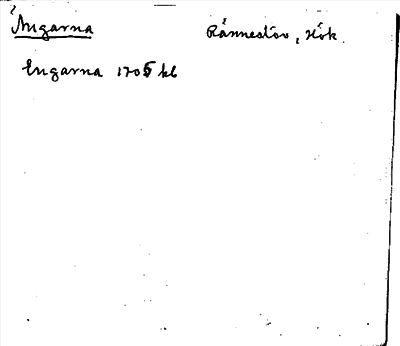 Ängarna Rännestöv, Hök.
Engarna 1705 kb